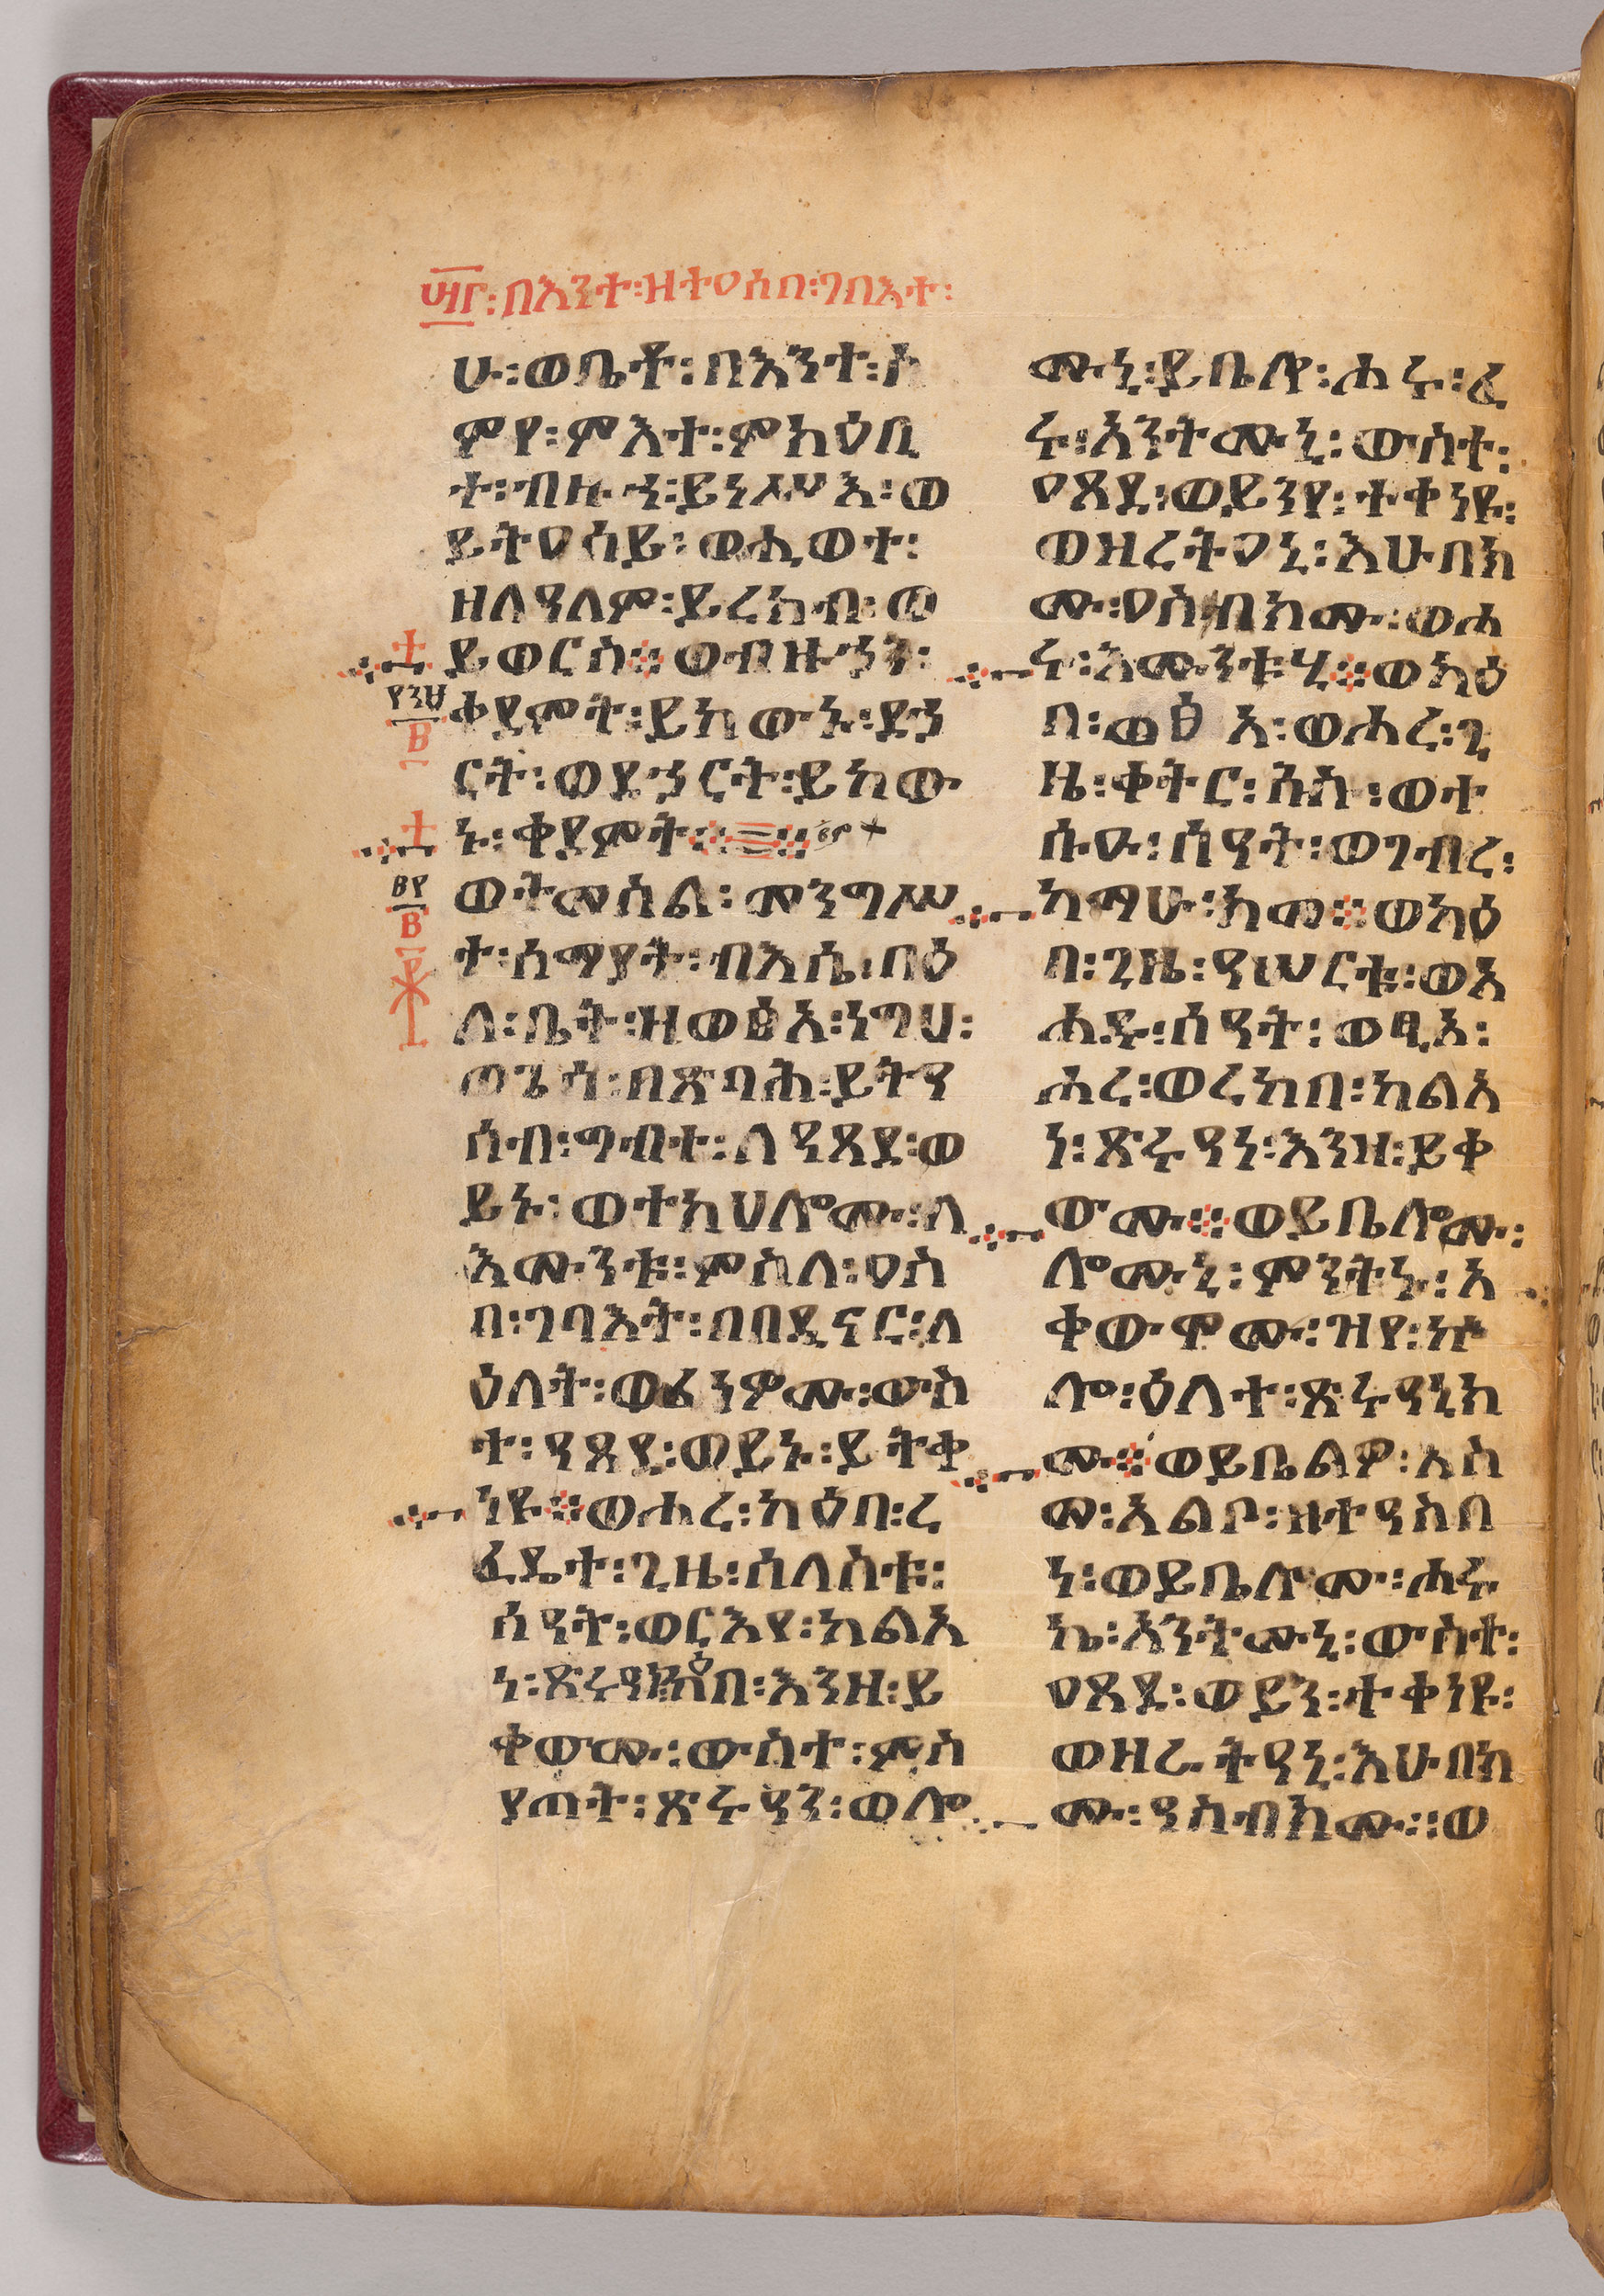 ፵፫፡በእንተ፡ዘተዐሰበ፡ገበእተ፡
ሁ፡ወቤቶ፡በእንተ፡ስ
ምየ፡ምእተ፡ምክዕቢ
ተ፡ብዙኀ፡ይነሥሥእ፡ወ
ይትዐሰይ፡ወሒወተ፡
ዘለዓለም፡ይረክብ፡ወ
ይወርስ፨ወብዙኃን፡
ቀደምት፡ይከውኑ፡ደኃ
ርት፡ወደኃርት፡ይከው
ኑ፡ቀደምት፨
ወትመስል፡መንግሥ
ተ፡ሰማያት፡ብእሴ፡በዕ
ለ፡ቤት፡ዘወፅአ፡ነግህ፡
ወጌሰ፡በጽባሕ፡ይትዓ
ሰብ፡ግብተ፡ለዓጸደ፡ወ
ይኑ፡ወተከሀሎሙ፡ለ
እሙንቱ፡ምስለ፡ዐስ
በ፡ገባእት፡በበዲናር፡ለ
ዕለት፡ወፈነዎሙ፡ውስ
ተ፡ዓጸደ፡ወይኑ፡ይትቀ
ነዩ፨ወሐረ፡ካዕበ፡ረ
ፈዴተ፡ጊዜ፡ሰለስቱ፡
ሰዓት፡ወርእየ፡ካልአ
ነ፡ጽሩዓነ፡እንዘ፡ይ
ቀውሙ፡ውስተ፡ምስ
ያጠት፡ጽሩዓን፡ወሎ
ሙኒ፡ይቤሎ፡ሐሩ፡ፈ
ሩ፡አንትሙኒ፡ውስተ፡
ዐጸደ፡ወይንየ፡ተቀነዩ፡
ወዘረትዐኒ፡እሁበክ
ሙ፡ዐስብክሙ፡ወሐ
ሩ፡እሙንቱሂ፨ወካዕ
በ፡ወፅአ፡ወሐረ፡ጊ
ዜ፡ቀትር፡ሱሱ፡ወተ
ሱዑ፡ሰዓት፡ወገብረ፡
ካማሁ፡ክመ፨ወካዕ
በ፡ጊዜ፡ዓሠርቱ፡ወአ
ሐዱ፡ሰዓት፡ወፂኦ፡
ሐረ፡ወረከበ፡ካልአ
ነ፡ጽሩዓነ፡እንዘ፡ይቀ
ውሙ፨ወይቤሎሙ፡
ሎሙኒ፡ምንትኑ፡አ
ቀውሞሙ፡ዝየ፡ኵ
ሎ፡ዕለተ፡ጽሩዓኒክ
ሙ፨ወይቤልዎ፡እስ
መ፡አልቦ፡ዘተዓሰበ
ነ፡ወይቤሎሙ፡ሐሩ
ኬ፡አንትሙኒ፡ውስተ፡
ዐጸደ፡ወይን፡ተቀነዩ፡
ወዘረትዓኒ፡እሁበክ
ሙ፡ዓስብክሙ፡፡ወ